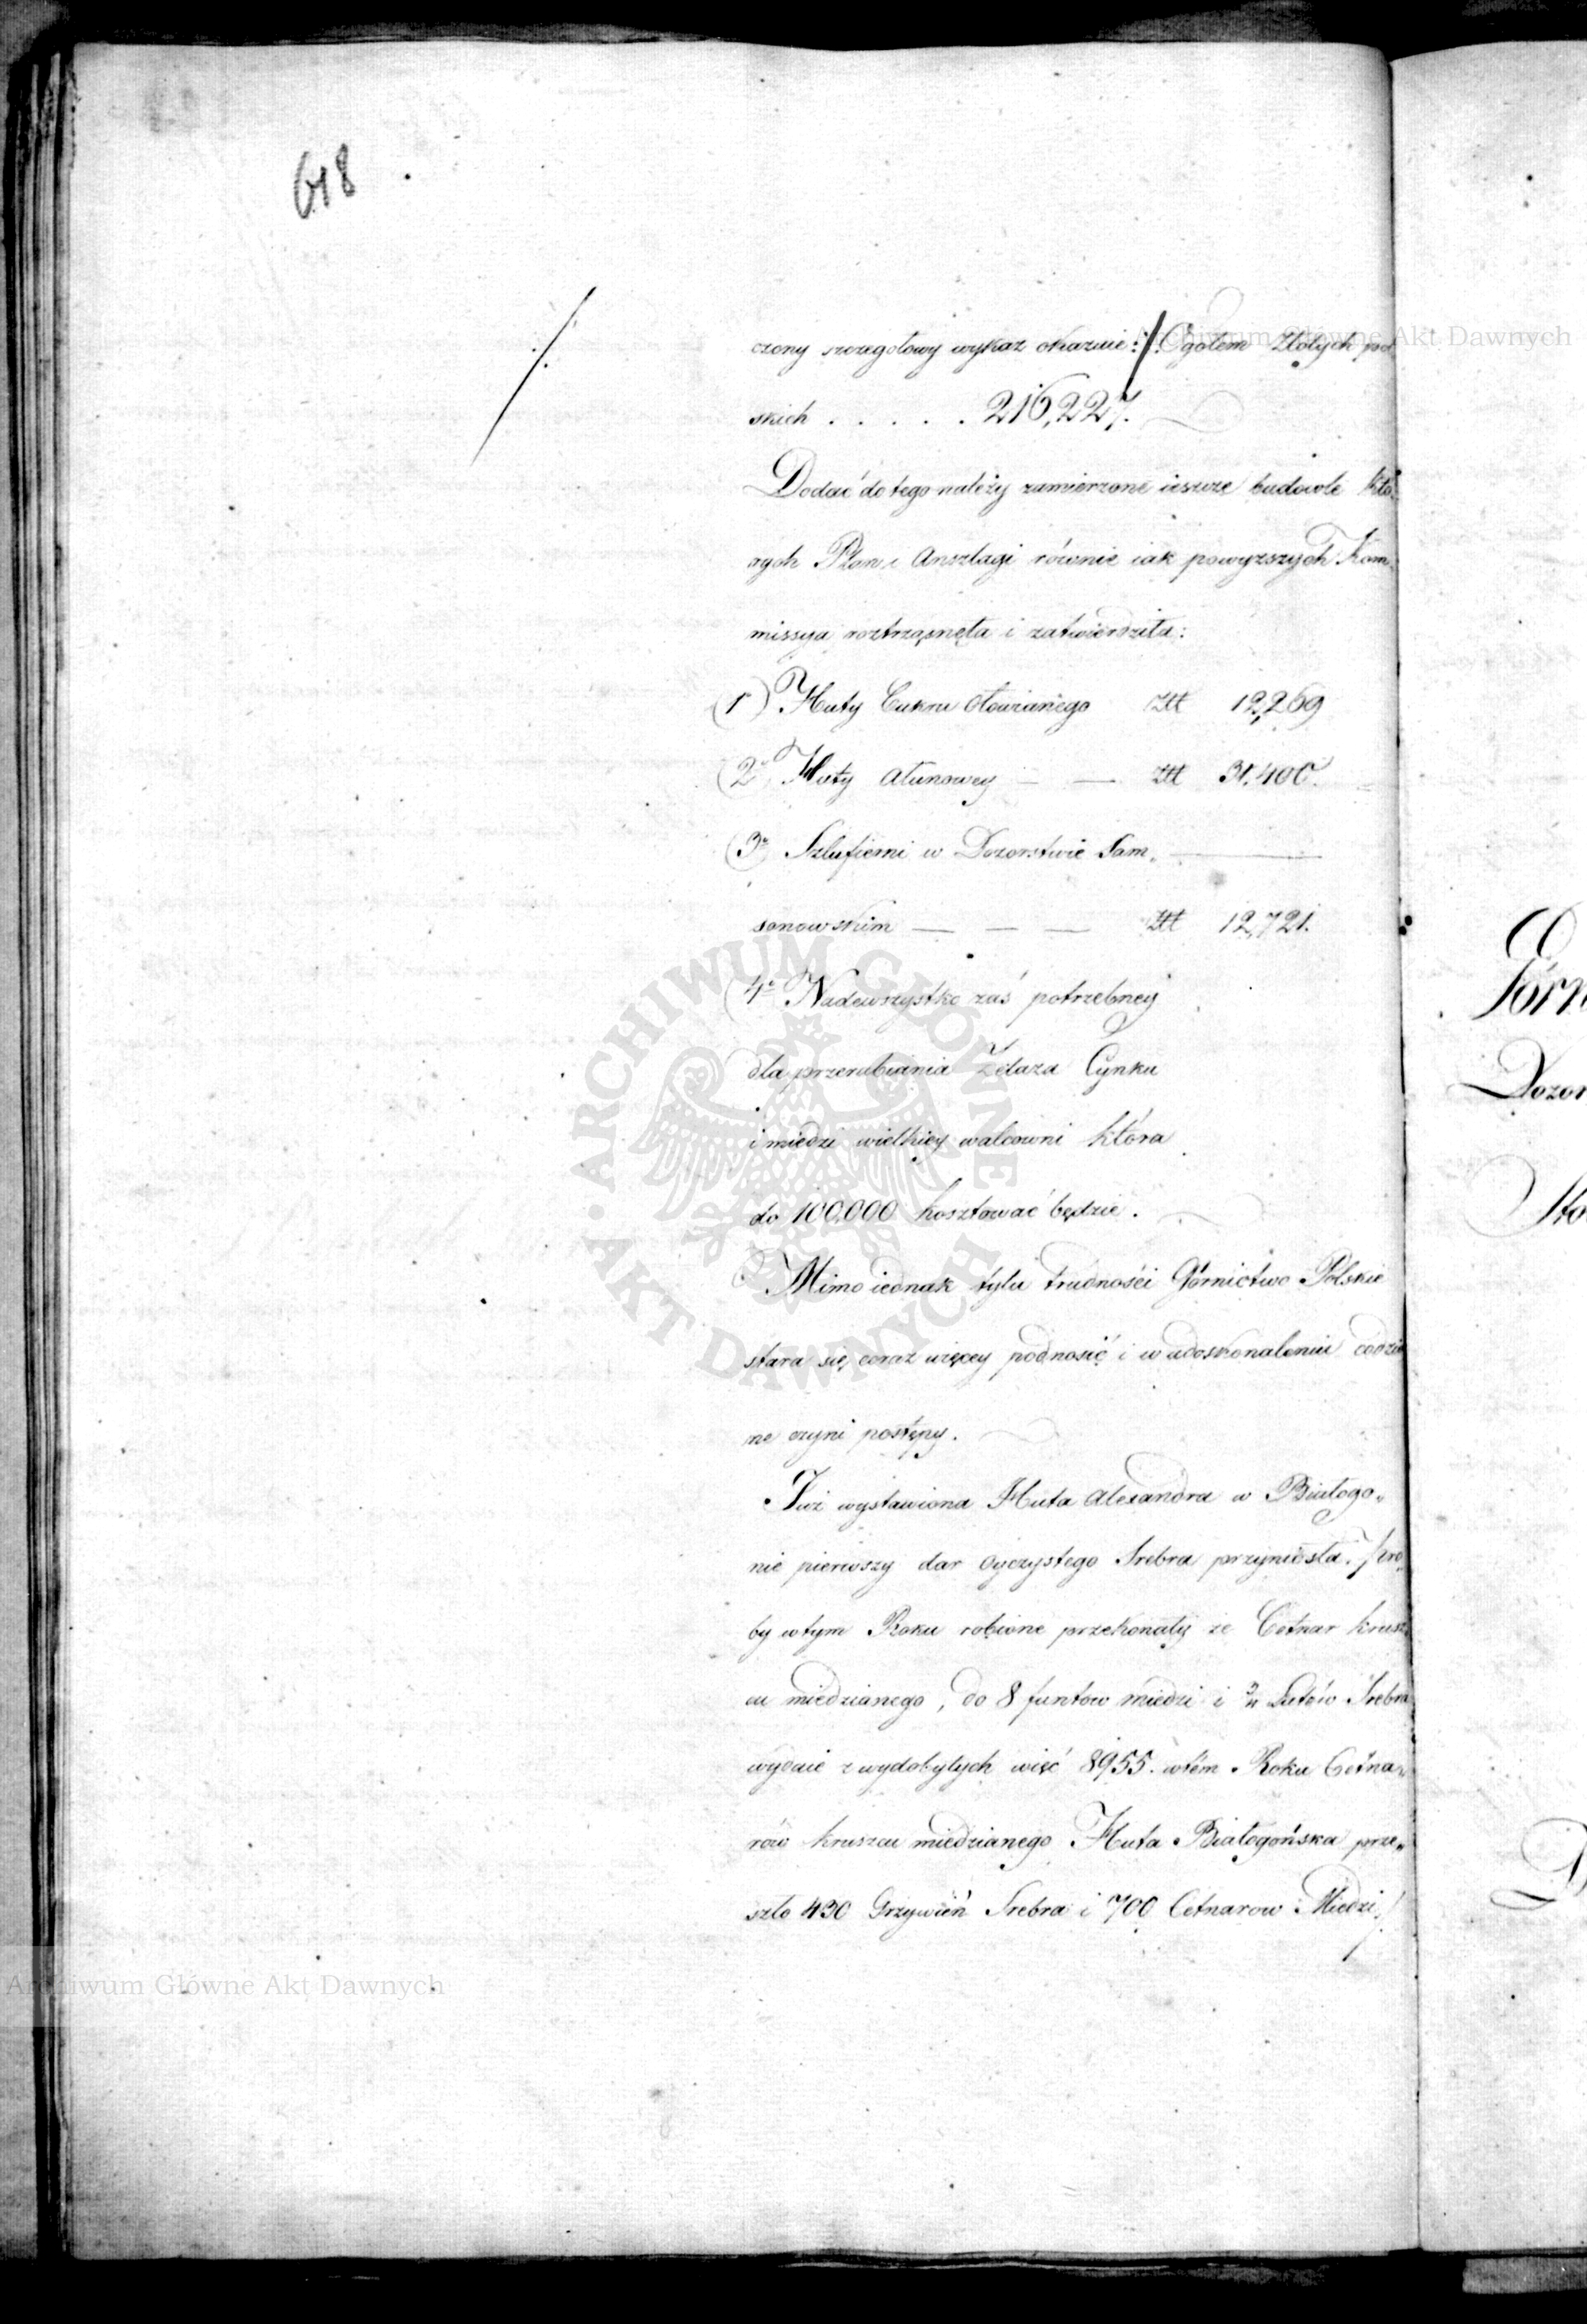 618
czony szczegołowy wykaz okazuie :/: Ogołem Złotych pol
skich . . . . . 216,227.
Dodać do tego należy zamierzone ieszcze budowle któ„
rych Plan i Anszlagi równie iak powyższych Kom„
missya roztrząsnęła i zatwierdziła:
(1° Huty Cukru Ołowianego Złł 12,269
(2° Huty Ałunowey — — Złł 31,400.
(3° Szlufierni w Dozorstwie Sam„
sonowskim — — — Złł 12,721.
(4° Nadewszystko zaś potrzebney
dla przerabiania Żelaza Cynku
i miedzi wielkiey walcowni która
do 100,000 kosztować będzie.
Mimo iednak tylu trudności Górnictwo Polskie
stara się coraz więcey podnosić i w udoskonaleniu codzie
ne czyni postępy.
Iuż wystawiona Huta Alexandra w Białogo„
nie pierwszy dar Oyczystego Srebra przyniosła. Pro„
by w tym Roku robione przekonały że Cetnar krusz„
cu miedzianego, do 8 funtow miedzi i Lutów Srebra
wydaie z wydobytych więć 8955. w tém Roku Cetna„
rów kruszcu miedzianego Huta Białogońska prze„
szło 430 Grzywień Srebra i 700 Cetnarow Miedzi
Górn
Dozor
Sto
Archiwum Główne Akt Dawnych
ARCHIWUM GŁÓWNE AKT DAWNYCH
Archiwum Główne Akt Dawnych